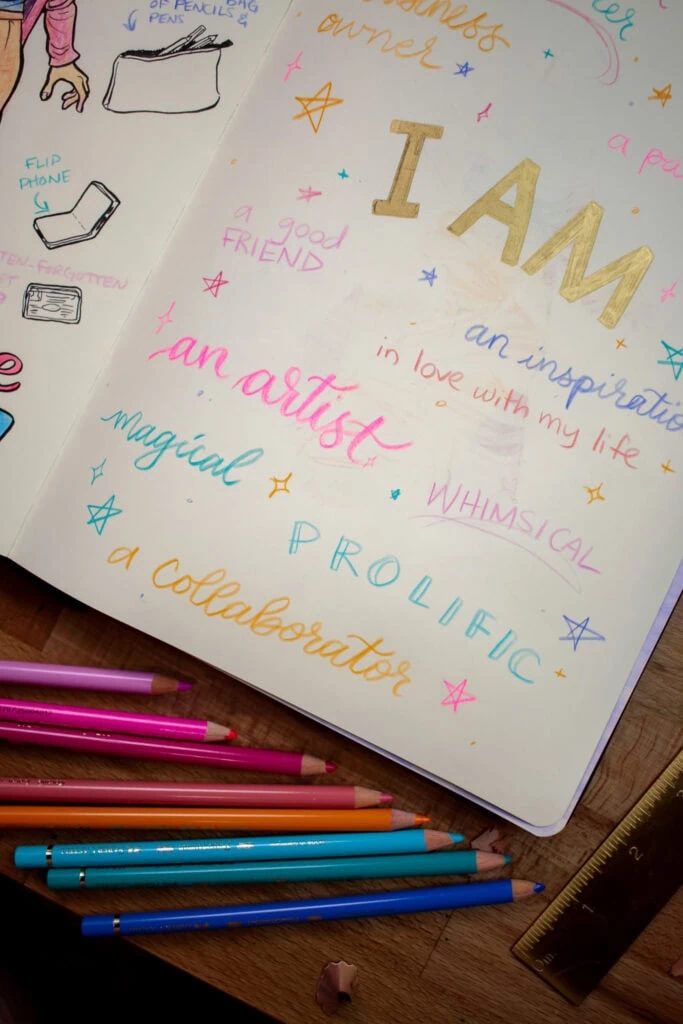 BAG
OF PENCILS &
PENS
FLIP
PHONE
business
owner
I AM
a good
FRIEND
an inspiratio
in love with my life
an artist
magical
WHIMSICAL
PROLIFIC
a collaborator
1
2